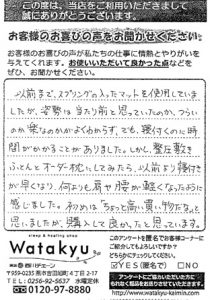 この度は、当店をご利用いただきまして
誠にありがとうございます。
お客様のお喜びの声をお聞かせください。
お客様のお喜びの声が私たちの仕事に情熱とやりがいを
与えてくれます。お使いいただいて良かった点などを
ぜひ、お聞かせください。
以前まで、スプリングの入ったマットを使用していま
したが、姿勢は当たり前と思っていたのか、つらい
のか楽なのかがよくわからず、でも、寝付くのに時
間がかかることがありました。しかし、整圧敷き
ふとんとオーダー枕にしてみたら、以前より寝付き
が早くなり、何よりも肩や腰が軽くなったように
感じました。初めは「ちょっと高い買い物だなぁ」と
思いましたが、購入して良かったと思っています。
sleep & healing shop
Watakyu
西川チェーン
〒959-0235 燕市吉田旭町4丁目2-17
TEL: 0256-92-5637 水曜定休
0120-97-8880
このアンケートを匿名でお客様コーナーに
ご紹介してもよろしいですか?
どちらかにチェックしてください。
YES(匿名で)
NO
アンケートにご協力いただいた方に
もれなく粗品をお送りさせていただきます
http://www.watakyu-kaimin.com